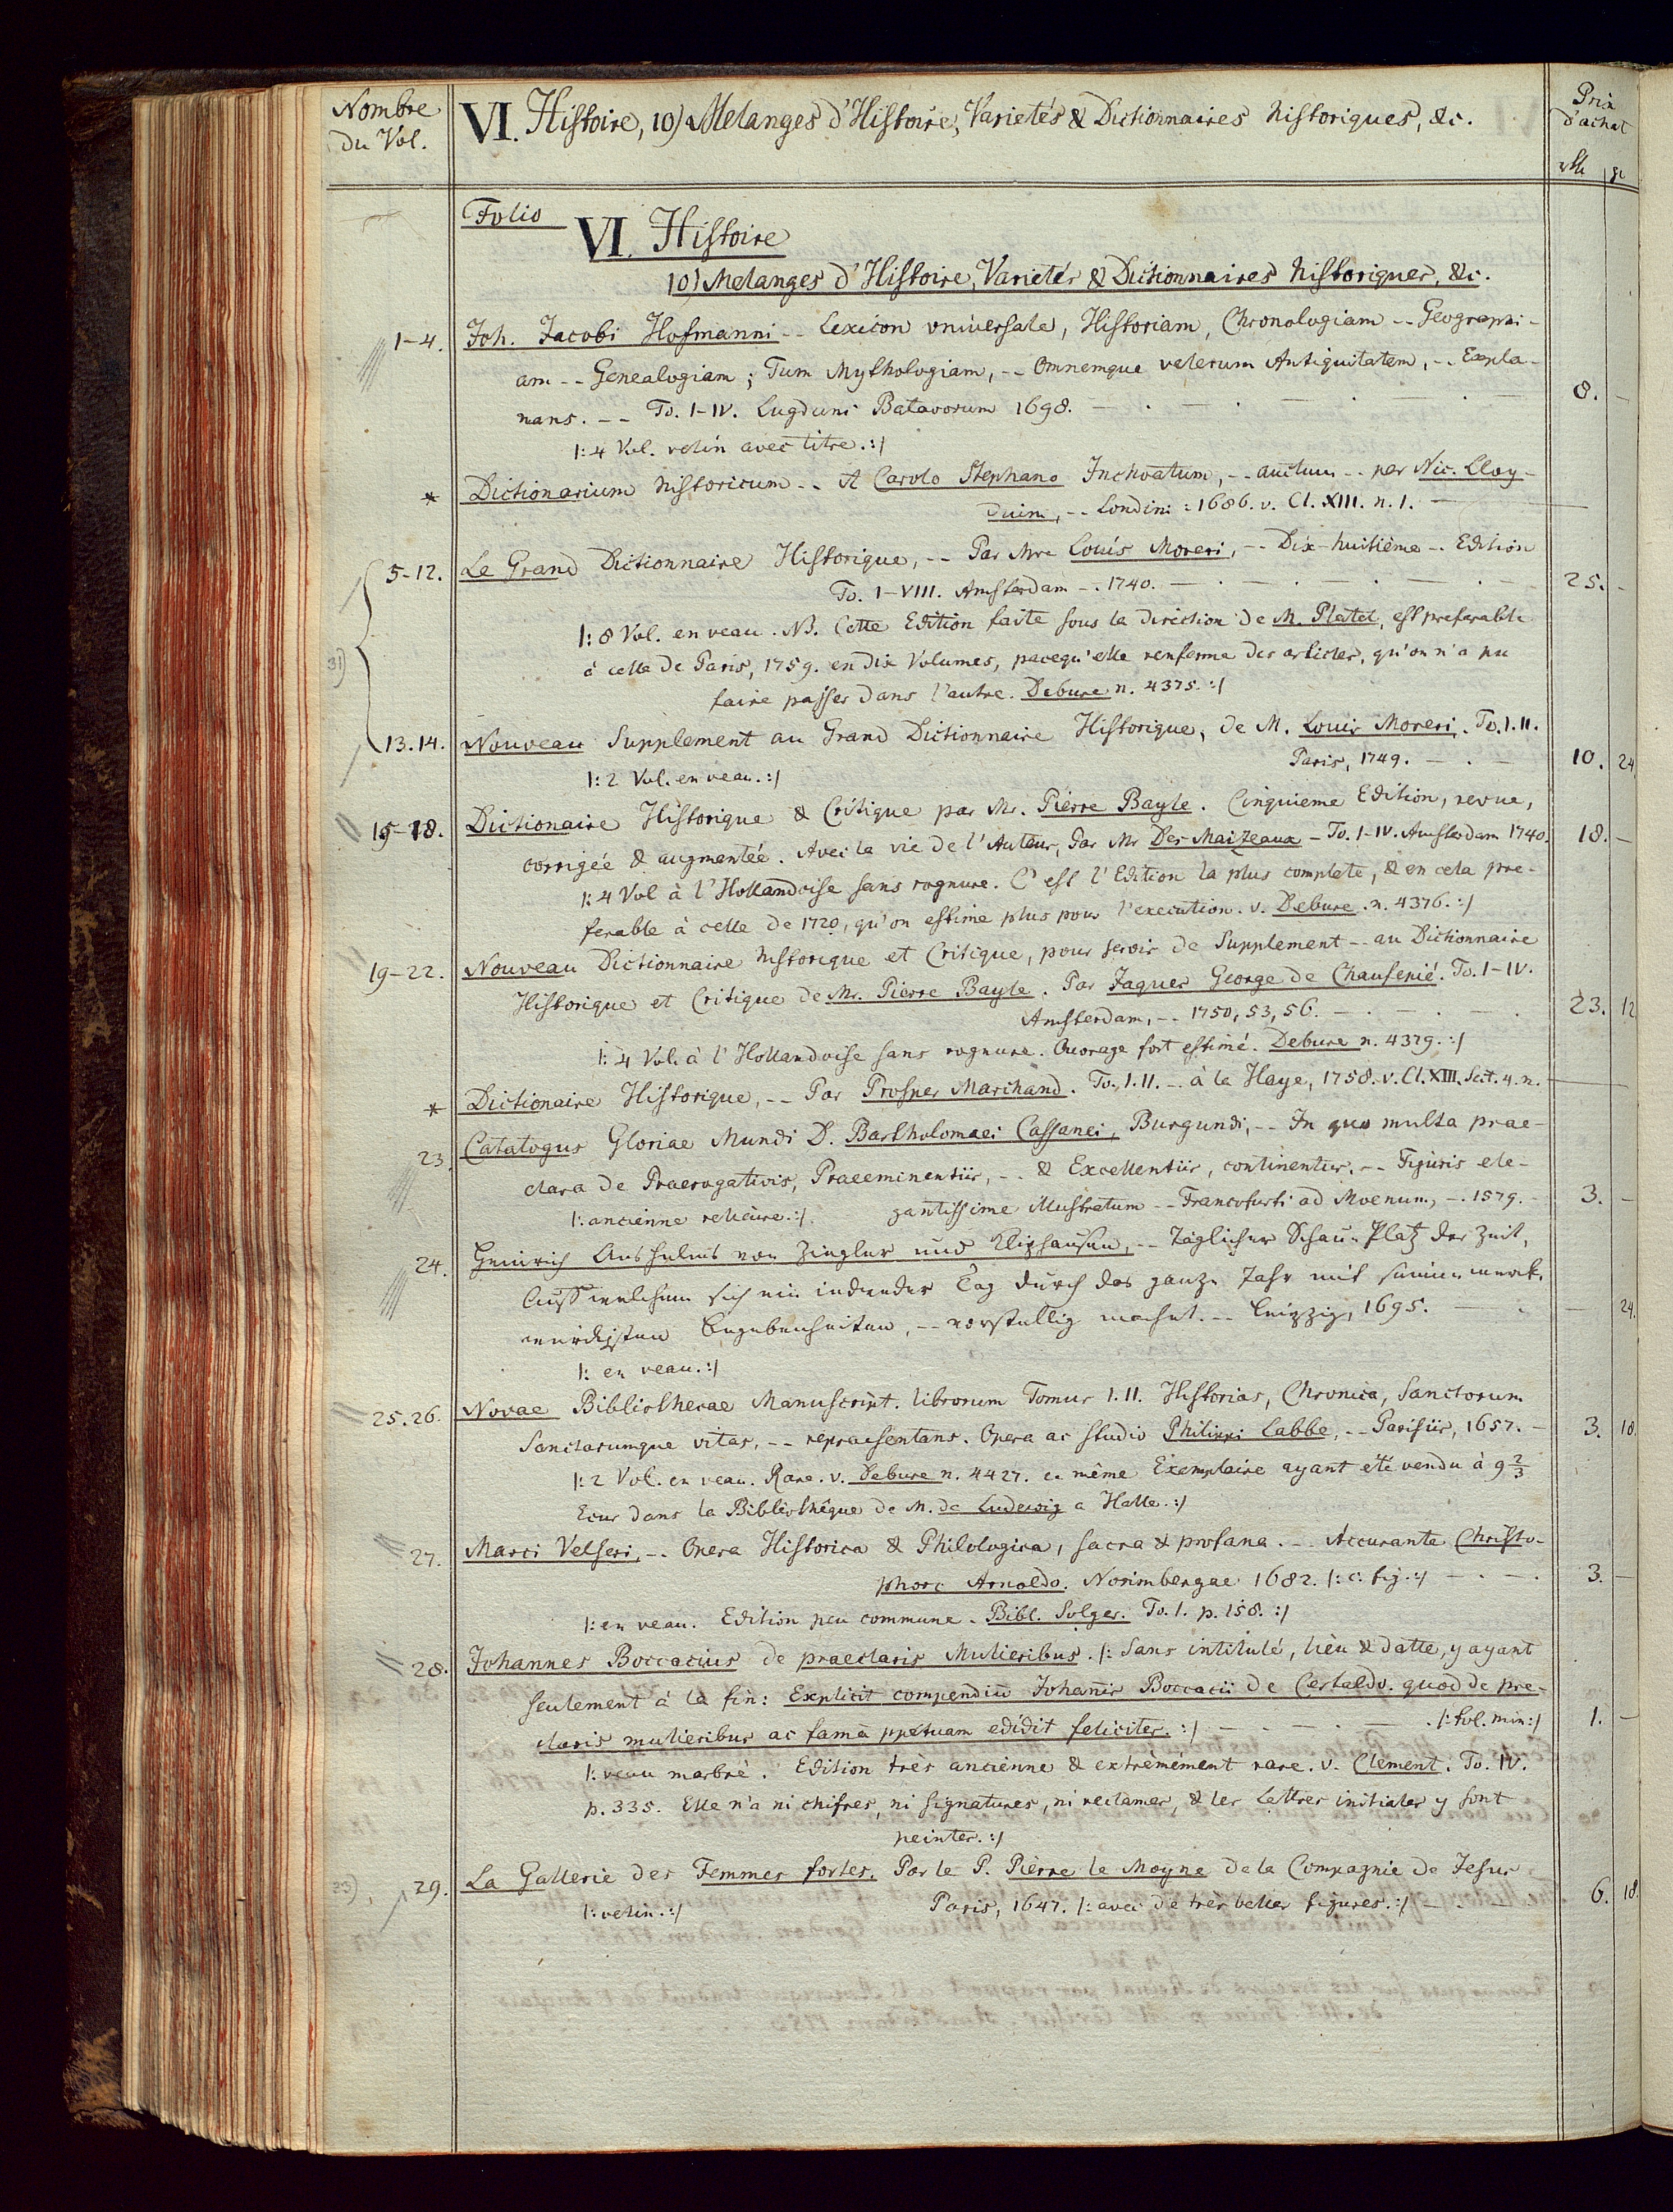 Nombre
du Vol.
VI. Histoire, 10) Melanges d'Histoire, Varietés & Dictionnaires historiques, &c.
Prix
d'achat
Folio
VI. Histoire
10) Melanges d'Histoire, Varietés & Dictionnaires historiques, &c.
1-4. Joh. Jacobi Hofmanni -- Lexicon universale, Historiam, Chronologiam -- Geographi-
am -- Genealogiam; Tum Mythologiam, -- Omnemque veterum Antiquitatem, -- Expla-
nans. -- To. I-IV. Lugduni Batavorum 1698. 8. -
|: 4 Vol. velin avec titre. :|
* Dictionarium historicum -- A Carolo Stephano Inchoatum, -- auctum -- per Nic. Lloy-
dium, -- Londini 1686. v. Cl. XIII. n. 1. -
5-12. Le Grand Dictionnaire Historique, -- Par Mre Louis Moreri, -- Dix-huitième -- Edition
To. I-VIII. Amsterdam -. 1740. 25. -
|: 8 Vol. en veau. NB. Cette Edition faite sous la direction de M. Platel, est preferable
à celle de Paris, 1759. en dix Volumes, parcequ'elle renferme des articles, qu'on n'a pu
31)
faire passer dans l'autre. Debure n. 4375. :|
13.14. Nouveau Supplement au Grand Dictionnaire Historique, de M. Louis Moreri. To. I. II.
Paris, 1749. 10. 24
|: 2 Vol. en veau. :|
15-18. Dictionaire Historique & Critique par Mr. Pierre Bayle. Cinquieme Edition, revue,
corrigée & augmentée. Avec la vie de l'Auteur, Par Mr Des Maizeaux - To. I-IV. Amsterdam 1740. 18. -
|: 4 Vol à l'Hollandoise sans rognure. C'est l'Edition la plus complete, & en cela pre-
ferable à celle de 1720, qu'on estime plus pour l'execution. v. Debure. n. 4376. :|
19-22. Nouveau Dictionnaire historique et Critique, pour servir de Supplement -- au Dictionnaire
Historique et Critique de Mr. Pierre Bayle. Par Jaques George de Chaufepié. To. I-IV.
Amsterdam, -- 1750, 53, 56. 23. 12
|: 4 Vol. à l'Hollandoise sans rognure. Ouvrage fort estimé. Debure n. 4379. :|
* Dictionaire Historique, -- Par Prosper Marchand. To. I. II. -- à la Haye, 1758. v. Cl. XIII. Sect. 4. n.
23. Catalogus Gloriae Mundi D. Bartholomaei Cassanei, Burgundi, -- In quo multa prae-
clara de Praerogativis, Praeeminentiis, -- & Excellentiis, continentur. -- Figuris ele-
|: ancienne relieure. :| gantissime illustratum -- Francofurti ad Moenum, -. 1579. 3. -
24. Heinrich Anshelms von Ziegler und Kliphausen, -- Täglicher Schau-Platz der Zeit,
Auff welchem sich ein iedweder Tag durch das ganze Jahr mit seinen merck-
würdigsten Begebenheiten, -- vorstellig machet. -- Leipzig, 1695. - 24.
|: en veau. :|
25.26. Novae Bibliothecae Manuscript. librorum Tomus I. II. Historias, Chronica, Sanctorum
Sanctarumque vitas, -- repraesentans. Opera ac studio Philippi Labbe, -- Parisiis, 1657. - 3. 18.
|: 2 Vol. en veau. Rare. v. Debure n. 4427. ce même Exemplaire ayant été vendu à 9 2/3
Ecus dans la Bibliothéque de M. de Ludewig a Halle. :|
27. Marci Velseri, -. Opera Historica & Philologica, sacra & profana. -- Accurante Christo-
phoro Arnoldo. Norimbergae 1682. |: c. fig. :| 3. -
|: en veau. Edition peu commune. Bibl. Solger. To. I. p. 158. :|
28. Johannes Boccacius de praeclaris Mulieribus. |: Sans intitulé, lieu & datte, y ayant
seulement à la fin: Explicit compendiū Johannis Boccacii de Certaldo. quod de pre-
claris mulieribus ac famā ppetuam edidit feliciter. :| |: fol. min: :| 1. -
|: veau marbré. Edition très ancienne & extrèmément rare. v. Clement. To. IV.
p. 335. Elle n'a ni chifres, ni signatures, ni reclames, & les Lettres initiales y sont
peintes. :|
29. La Gallerie des Femmes fortes. Par le P. Pièrre le Moyne de la Compagnie de Jesus
Paris, 1647. |: avec de très belles figures. :| 6. 18.
|: velin. :|